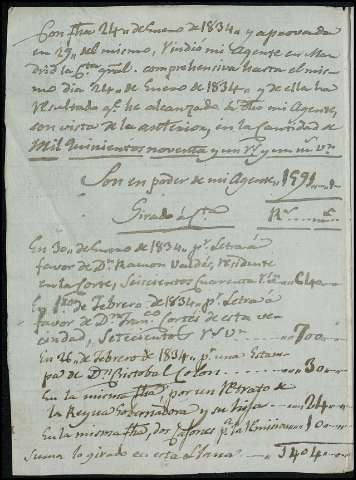 Con fha 24,, de Enero de 1834,, y aprovada
en 29,, del mismo, rindio mi Agente en Ma-
drid la Cta gral. comprehensiva hasta el mis-
mo dia 24,, de Enero de 1834,, y de ella ha
resultado qe he alcanzado á dho mi Agente,
con vista de la anterior, en la Cantidad de
Mil Quinientos noventa y un rs y un mrs vn
Son en poder de mi Agente,, 1591,,
Girado á Cta Rs mrs
En 30,, de Enero de 1834,, pr Letra á
favor de Dn Ramon Valdés, residente
en la Corte, Seiscientos Cuarenta rs 640
En 1ro de Febrero de 1834,, pr Letra á
favor de Dn Franco Cortés de esta ve-
cindad, Setecientos rs vn 700
En 26,, de Febrero de 1834,, pr una Estam-
pa de Dn Cristobal Colon 30
En la misma fha, por un Retrato de
la Reyna Gobernadora y su hija 24
En la misma fha, dos Cajones pa la Remision 10
Suma lo girado en esta Llana 1404